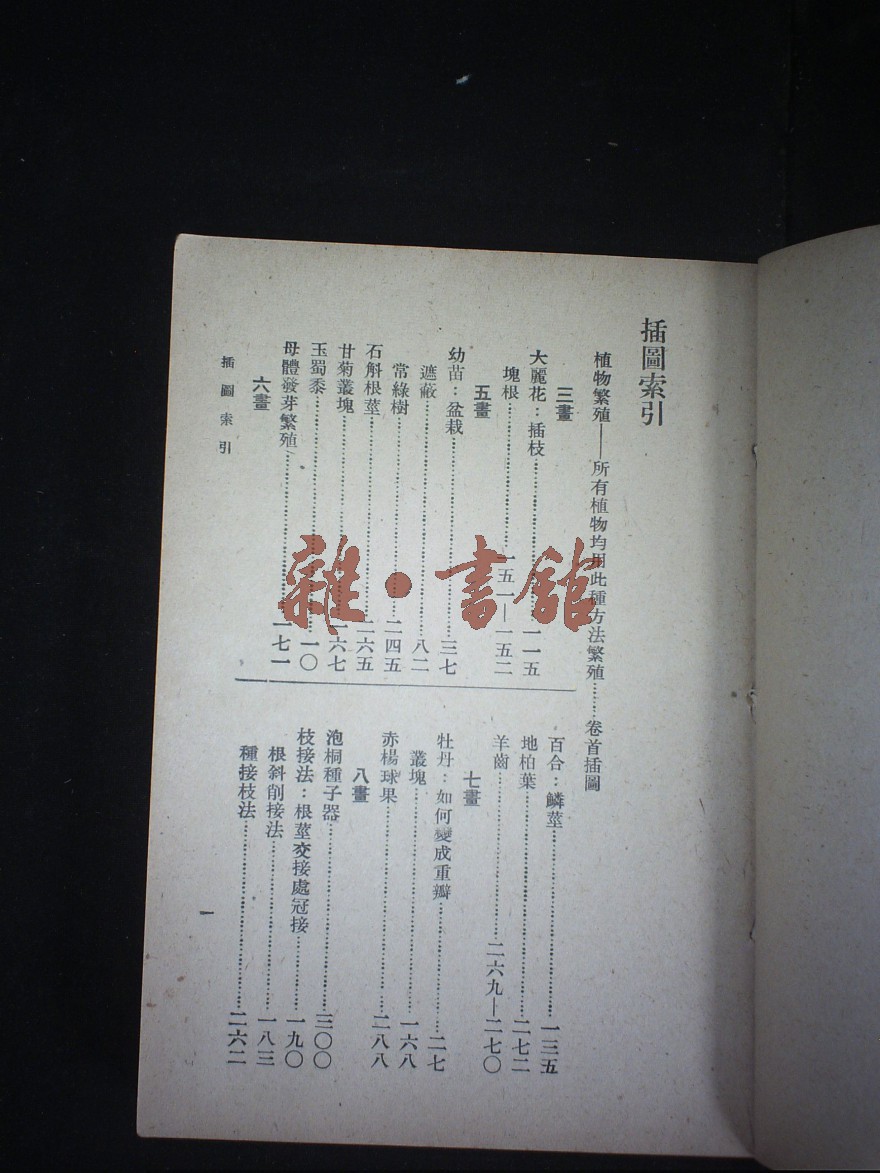 插圖索引
植物繁殖——所有植物均用此種方法繁殖……卷首插圖
三畫
大麗花：插枝……一一五
塊根……一五一—一五二
五畫
幼苗：盆栽……三七
遮蔽……八二
常綠樹……二四五
石斛根莖……二六五
甘菊叢塊……一六七
玉蜀黍……一〇
母體發芽繁殖……一七一
六畫
百合：鱗莖……一三五
地柏葉……二七二
羊齒……二六九—二七〇
七畫
牡丹：如何變成重瓣……二七
叢塊……一六八
赤楊球果……二八八
八畫
泡桐種子器……三〇〇
枝接法：根莖交接處冠接……一九〇
根斜削接法……一八三
種接枝法……二六二
插圖索引
一
雜·書館